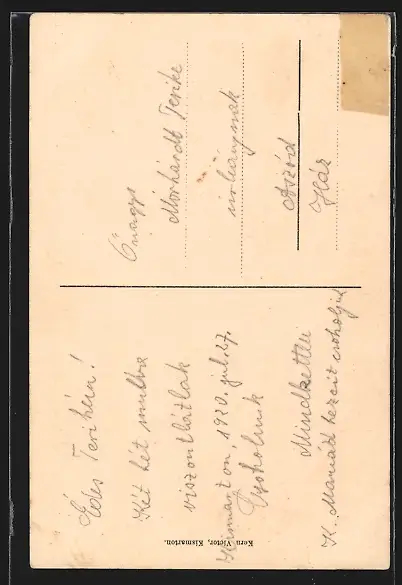 Édes Terikém!
Két hét mulva
viszontlátlak
Kismarton, 1920. júl. 27.
Csókolunk
Mindketten
K. Mamád kezeit csókoljuk
Kern Victor, Kismarton.
Önagys
Morhárdt Terike
urleánynak
Aszód
Ház